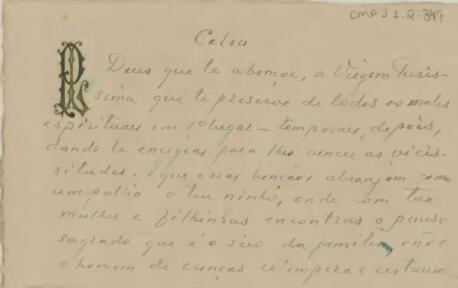 CMP J 1.2.347
Celso
Deus que te abençoe, a Virgem Puris-
sima que te preserve de todos os males
espirituaes em 1º lugar – temporaes, depois,
dando-te energias para lhes vencer as vicis-
situdes. E que essas bençãos abranjam como
um pallio o teu ninho, onde com tua
mulher e filhinhas encontras o pouso
sagrado que é o seio da familia, onde
o homem de crenças retempera e restaura